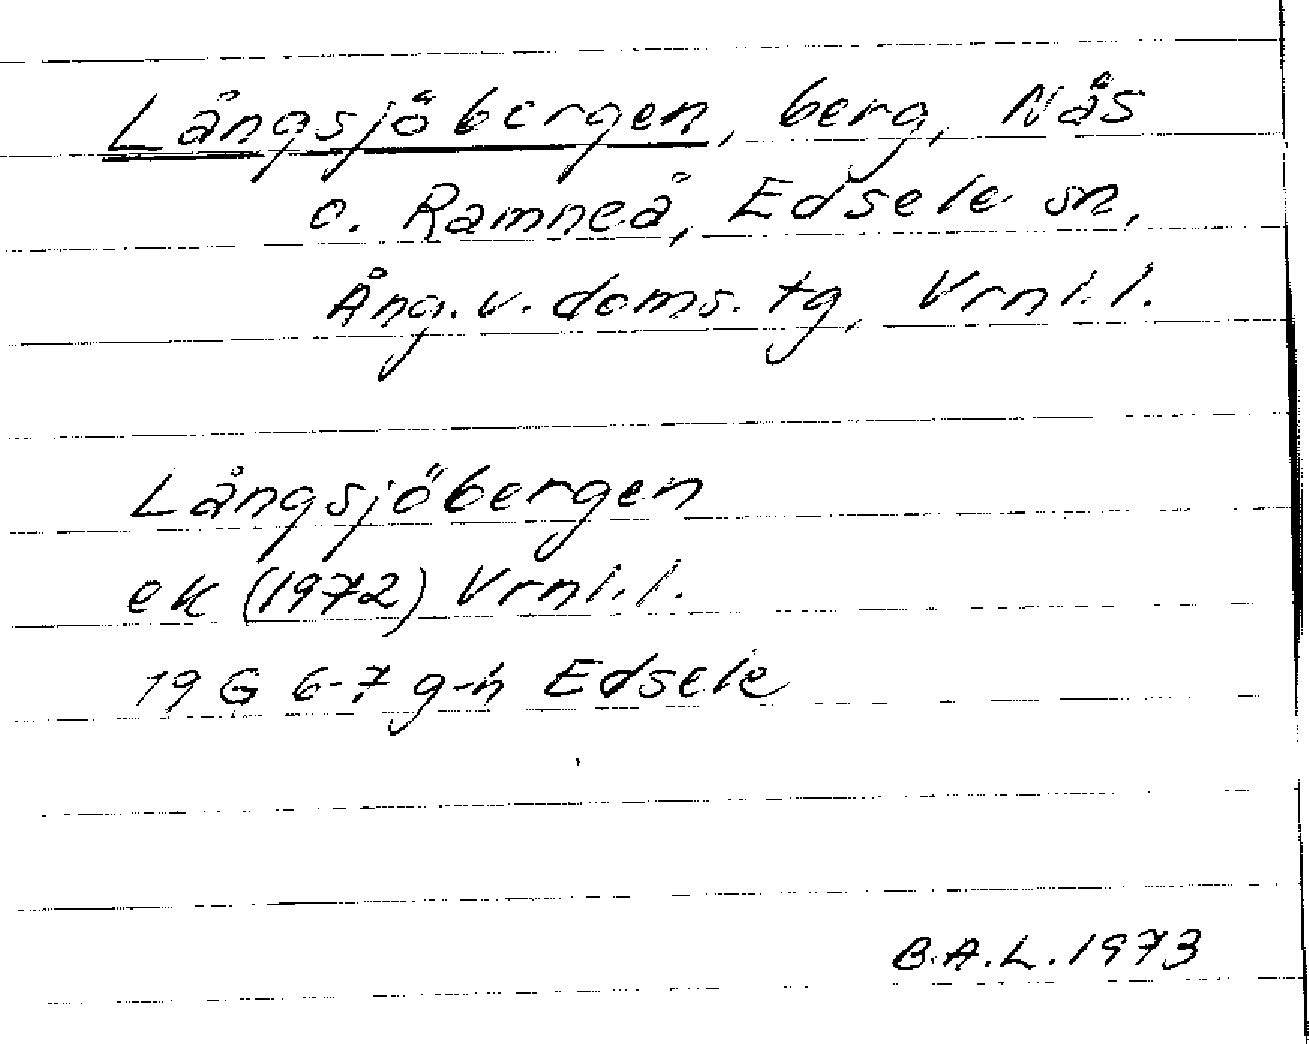 Långsjöbergen, berg, Näs
o. Ramneå, Edsele sn,
Ång. v. doms. tg, Vrnl. l.
Långsjöbergen
ek (1972) Vrnl. l.
19 G 6-7 g-h Edsele
B.A.L. 1973